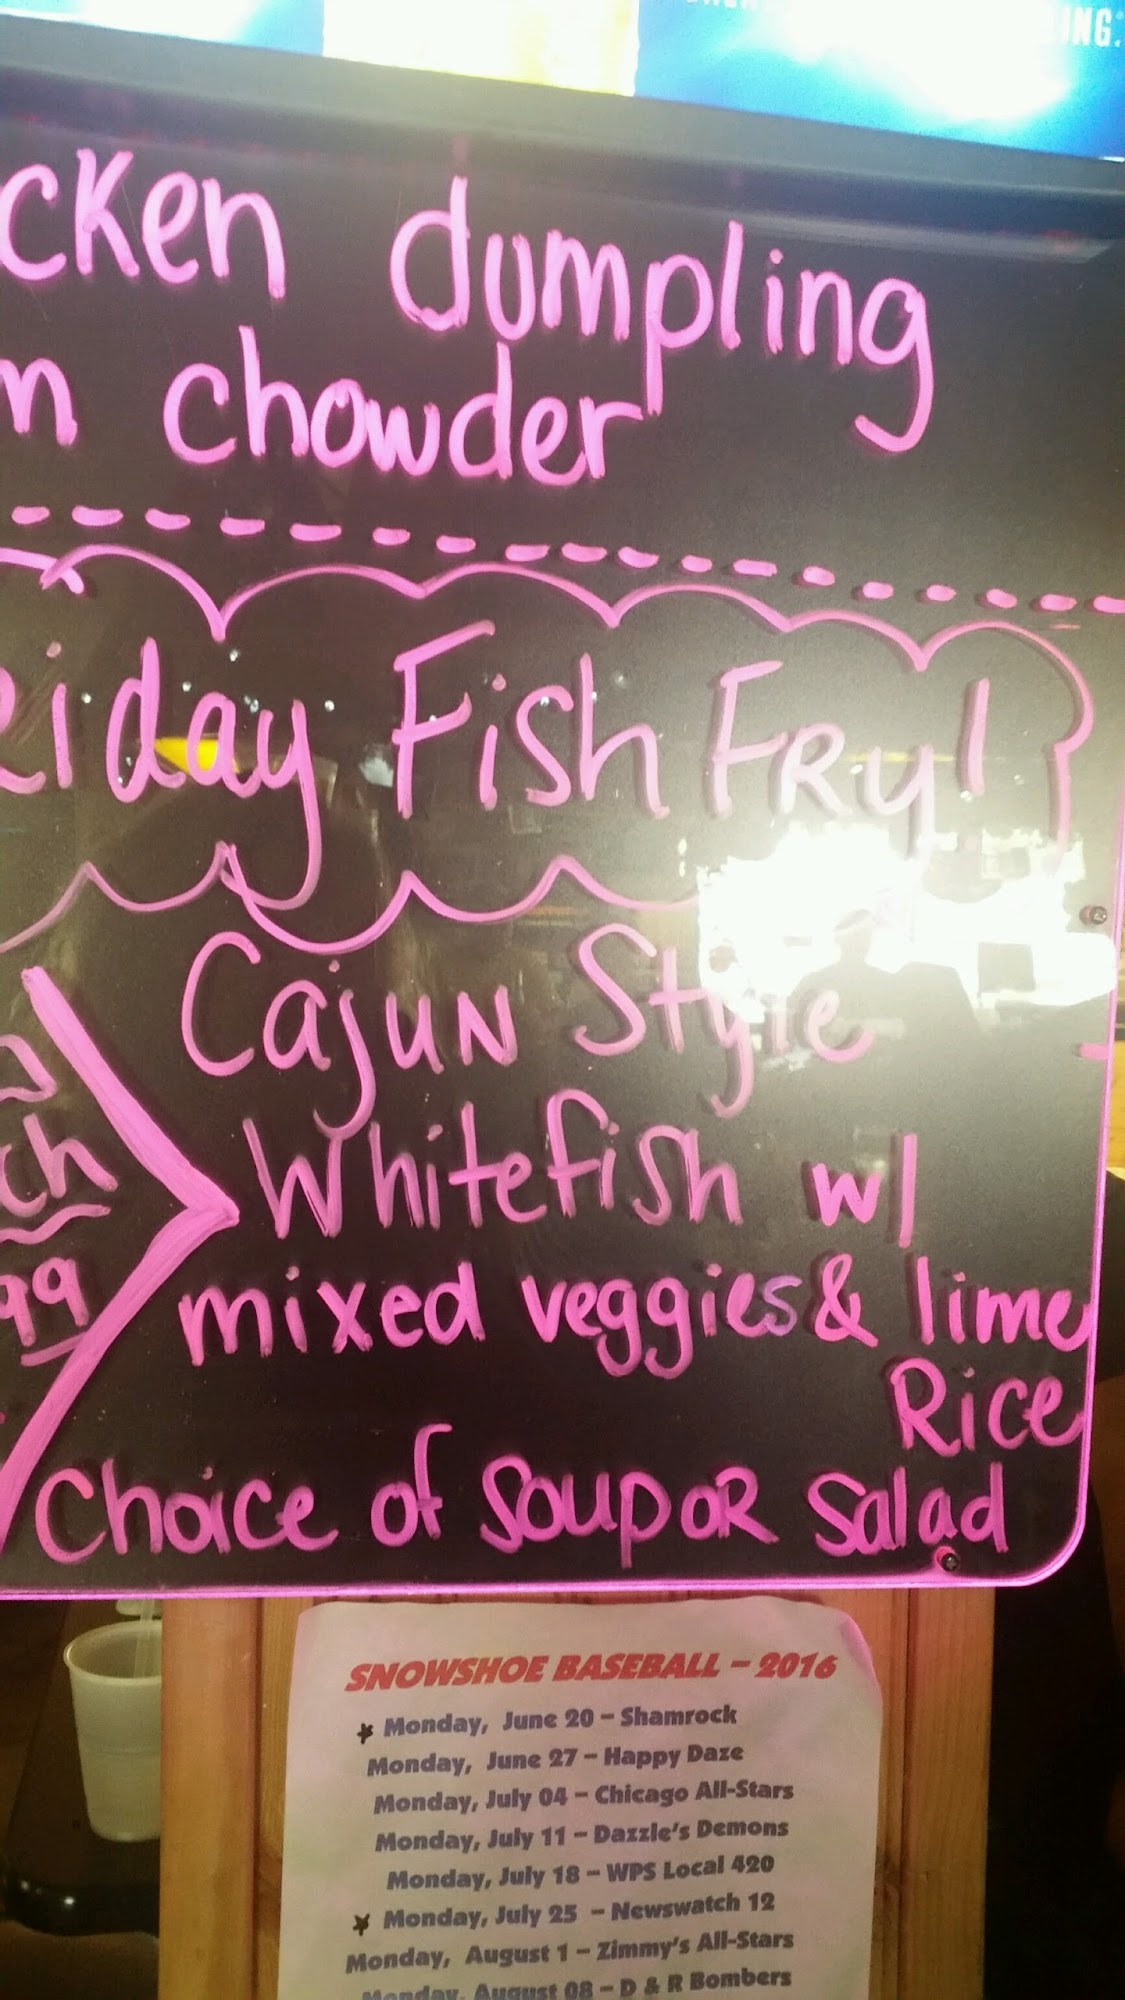 ING.
cken dumpling
m chowder
riday Fish Fry!
Cajun Style
ch
Whitefish w/
99
mixed veggies & lime
Rice
Choice of Soup or Salad
SNOWSHOE BASEBALL – 2016
Monday, June 20 – Shamrock
Monday, June 27 – Happy Daze
Monday, July 04 – Chicago All-Stars
Monday, July 11 – Dazzle's Demons
Monday, July 18 – WPS Local 420
Monday, July 25 – Newswatch 12
Monday, August 1 – Zimmy's All-Stars
Monday, August 08 – D & R Bombers